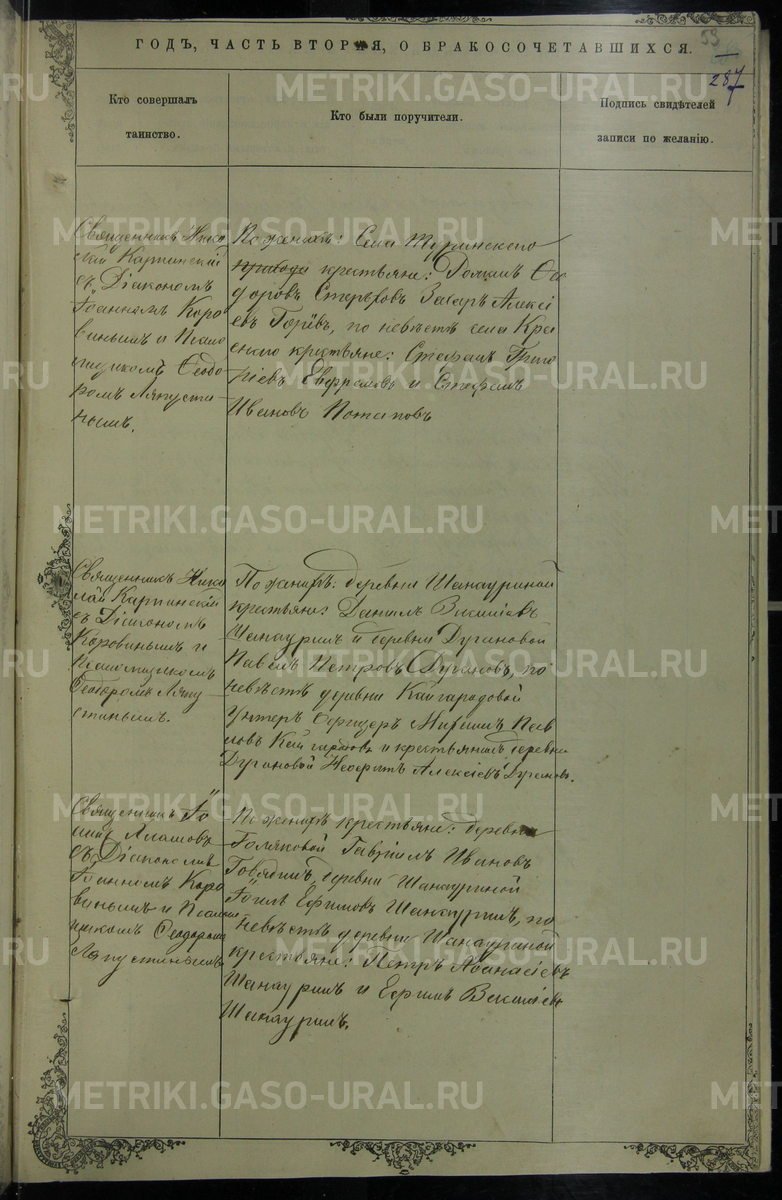 59
287
ГОДЪ, ЧАСТЬ ВТОРАЯ, О БРАКОСОЧЕТАВШИХСЯ.
Кто совершалъ
таинство.
Кто были поручители.
Подпись свидѣтелей
записи по желанію.
Священникъ Нико
лай Карпинскій
съ Діакономъ
Іоанномъ Коро
винымъ и Псало
мщикомъ Ѳеодо
ромъ Ляпусти
нымъ.
По женихѣ: Села Туринского
прихода крестьяне: Ѳео
доровъ Захаръ Алексі
евъ по невѣстѣ села Крас
ского крестьяне: Стефанъ Григо
ріевъ и Стефанъ
Ивановъ Потаповъ
Священникъ Нико
лай Карпинскій
съ Діакономъ
Коровинымъ и
Псаломщикомъ
Ѳеодоромъ Ляпу
стинымъ.
По женихѣ: деревни Шанауриной
крестьяне: Данилъ Василіевъ
Шанауринъ и деревни Дугановой
Павелъ Петровъ Дугановъ, по
невѣстѣ деревни Кайгародовой
Унтеръ Офицеръ Пав
ловъ и крестьянинъ деревни
Дугановой Неофитъ Алексіевъ Дугановъ.
Священникъ
съ Діакономъ
Іоанномъ Коро
винымъ и Псалом
щикомъ Ѳеодоромъ
Ляпустинымъ
По женихѣ крестьяне: деревни
Гавріилъ Ивановъ
деревни Шанауриной
Ефимовъ Шанауринъ, по
невѣстѣ деревни Шанауриной
крестьяне: Петръ Аѳанасіевъ
Шанауринъ и Ефимъ Василіевъ
Шанауринъ.
METRIKI.GASO-URAL.RU